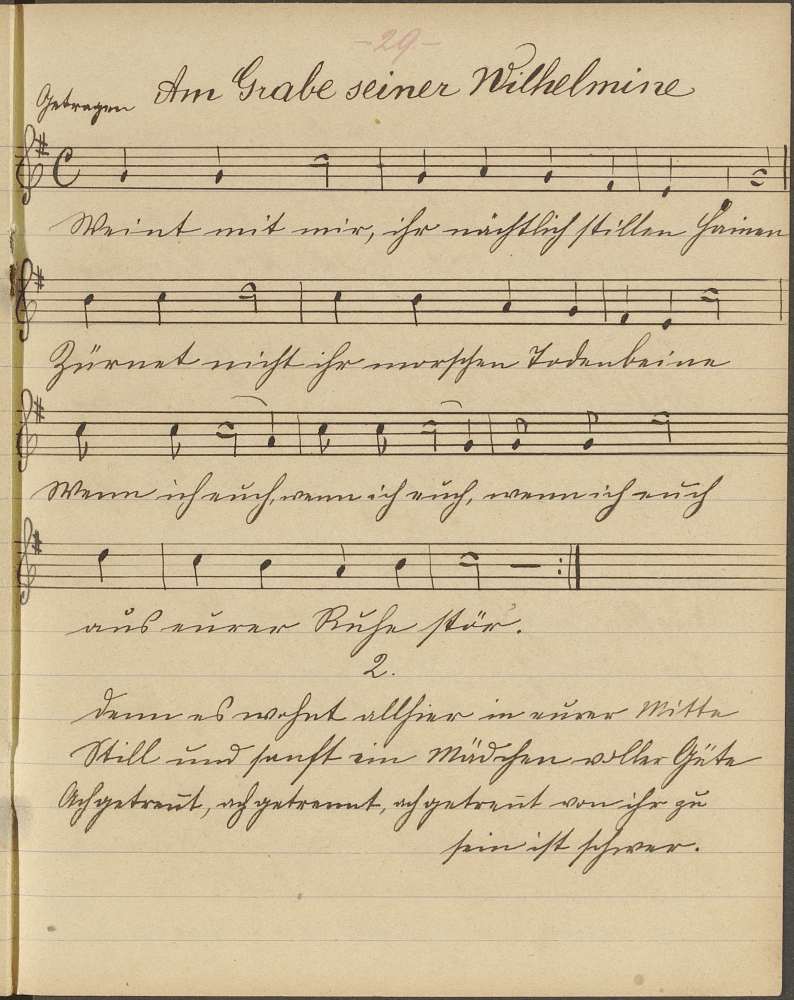 -29-
Am Grabe seiner Wilhelmine
Getragen
Weint mit mir, ihr nächtlich stillen Hainen
Zürnet nicht ihr morschen Todenbeine
Wenn ich euch, wenn ich euch, wenn ich euch
aus eurer Ruhe stör.
2.
Denn es wohnt allhier in eurer Mitte
Still und sanft ein Mädchen voller Güte
Ach getren̄t, ach getrennt, ach getren̄t von ihr zu
sein ist schwer.